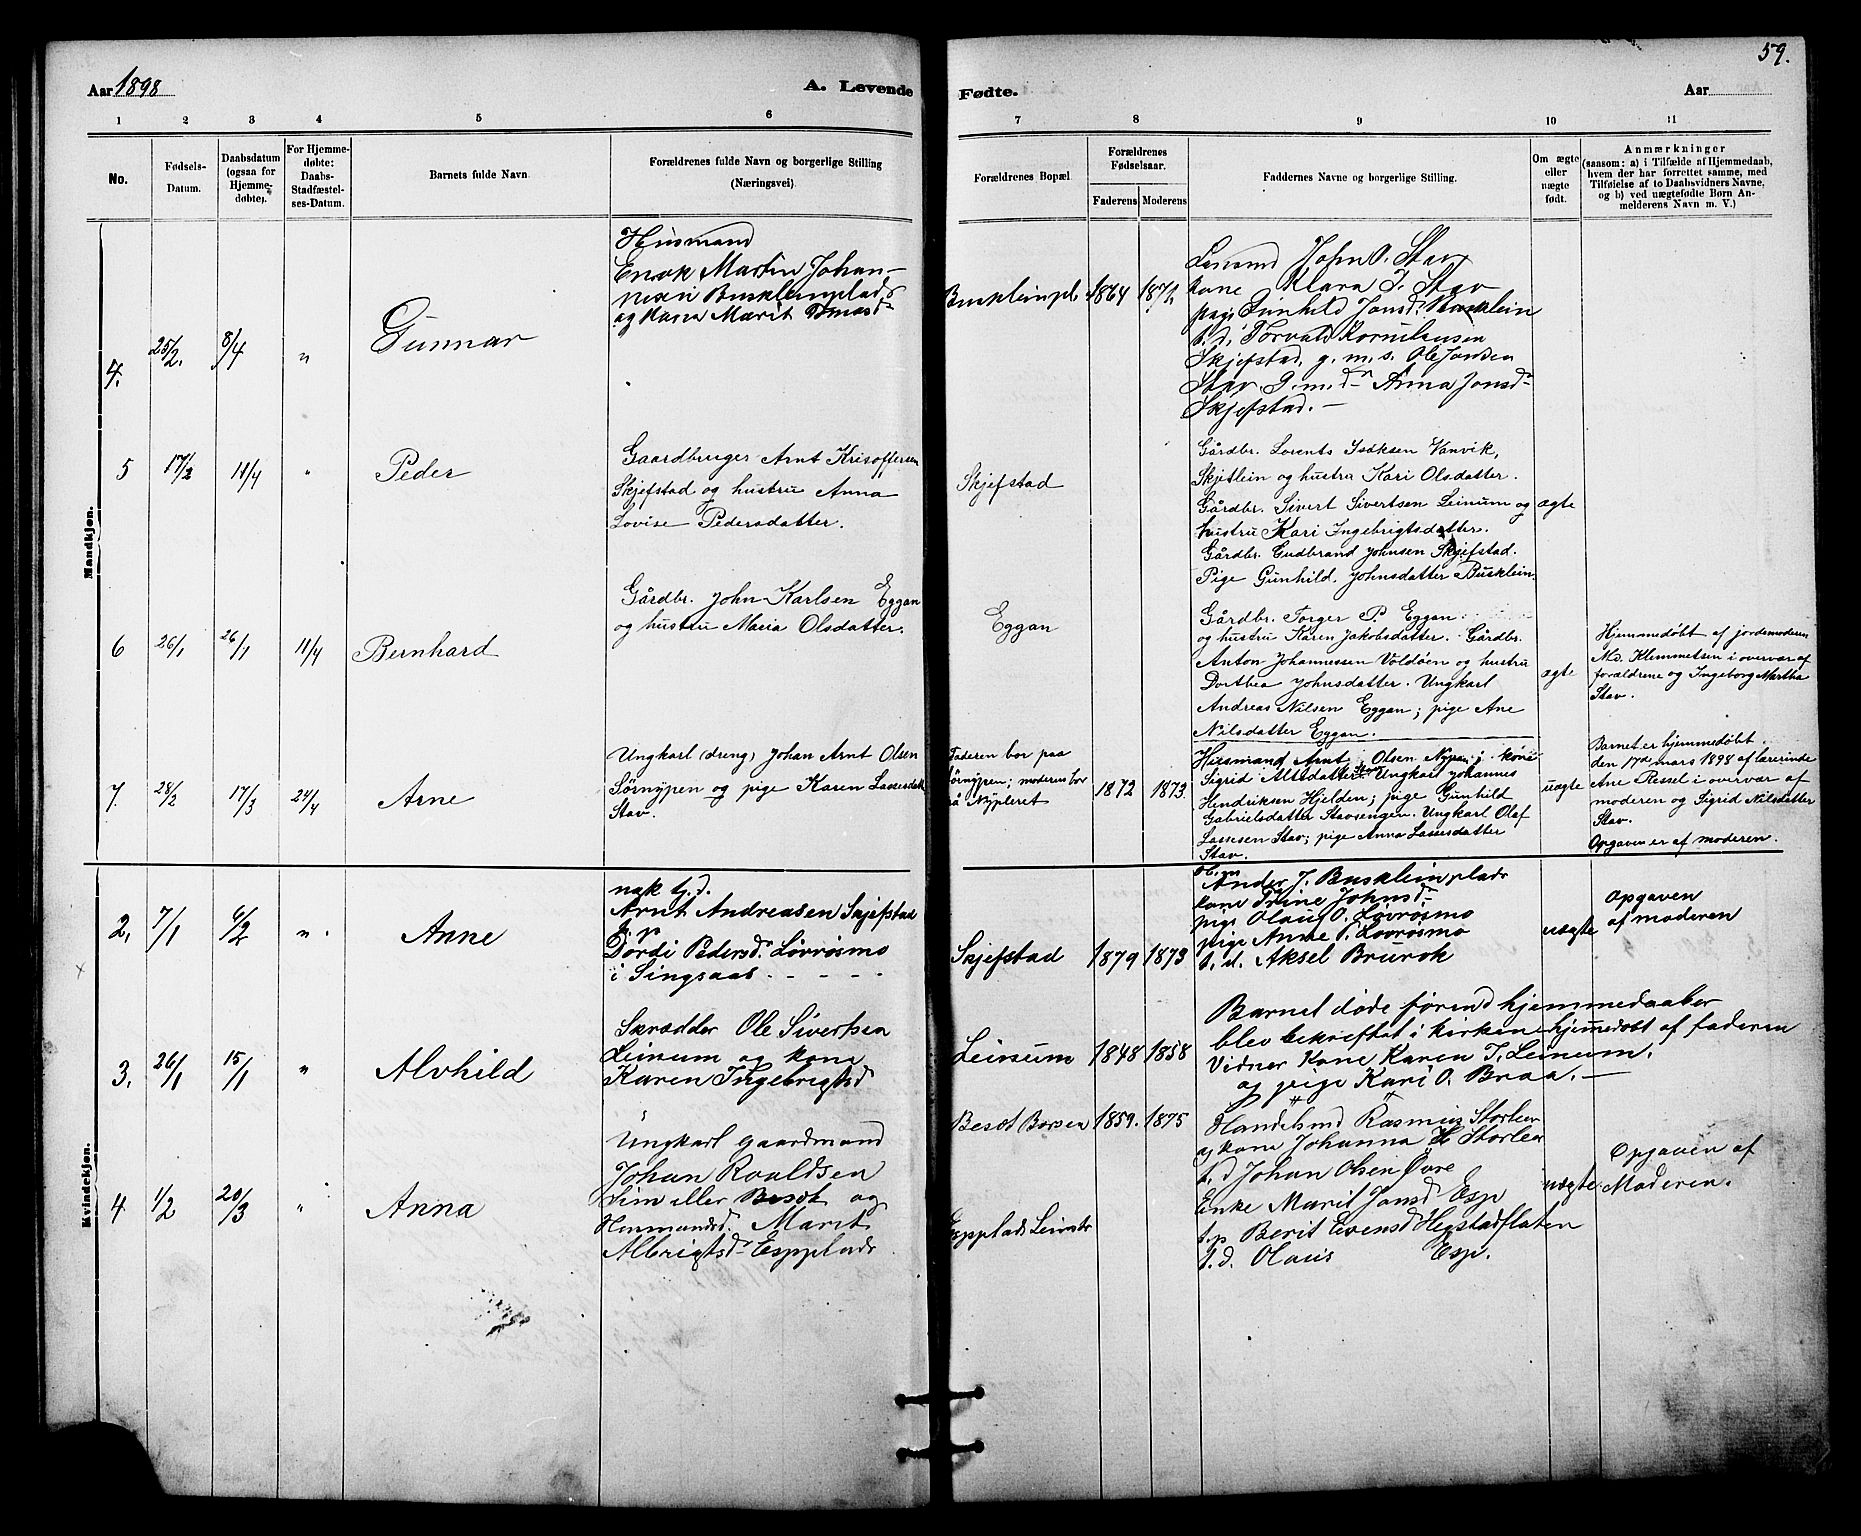 59.
Aar 1898
A. Levende
Fødte.
Aar
1 2 3 4 5 6
7 8 9 10 11
No.
Fødsels-
Datum.
Daabsdatum
(ogsaa for
Hjemme-
døbte).
For Hjemme-
døbte:
Daabs-
Stadfæstel-
ses-Datum.
Barnets fulde Navn.
Forældrenes fulde Navn og borgerlige Stilling
(Næringsvei).
Forældrenes Bopæl.
Forældrenes
Fødselsaar.
Faderens Moderens
Faddernes Navne og borgerlige Stilling.
Om ægte
eller
uægte
født.
Anmærkninger
(saasom: a) i Tilfælde af Hjemmedaab,
hvem der har forrettet samme, med
Tilføielse af to Daabsvidners Navne,
og b) ved uægtefødte Børn An-
melderens Navn m. V.)
Mandkjøn.
4. 25/2. 8/4 " Gunnar
Husmand
Enok Martin Johan-
nesen Buskleinplads
og Kona Marit
Buskleinpl 1864
John O. Stav
kone Klara J. Stav
pige Gunhild Jonsd. Busklein
t. d. Torvald Kornelïusen
Skjefstad, g. m. s. Ole Jonsen
Stav. G. m. d. Anna Jonsd
Skjefstad. —
5 17/2 11/4 " Peder
Gaardbruger Arnt Krisoffersen
Skjefstad og hustru Anna
Lovise Pedersdatter.
Skjefstad
Gårdbr. Lorents Isaksen Vanvik,
Skjetlein og hustru Kari Olsdatter.
Gårdbr. Sivert Sivertsen Leinum og
hustru Kari Ingebrigtsdatter.
Gårdbr. Gudbrand Johnsen Skjefstad.
Pige Gunhild Johnsdatter Busklein.
ægte
6 26/1 26/1 11/4 Bernhard
Gårdbr. John Karlsen Eggan
og hustru Maria Olsdatter.
Eggan
Gårdbr. Torger P. Eggan
og hustru Karen Jakobsdatter. Gårdbr.
Anton Johannessen Voldøen og hustru
Dorthea Johnsdatter. Ungkarl
Andreas Nilsen Eggan; pige Ane
Nilsdatter Eggan.
ægte
Hjemmedøbt af jordemoderen
Md. Klemmetsen i overvær af
forældrene og Ingeborg Martha
Stav.
7. 28/2 17/3 24/4 Arne
Ungkarl (dreng) Johan Arnt Olsen
Sørnypen og pige Karen Lassesdatt
Stav.
Faderen bor paa
Sørnypen; moderen bor
på Nypleret
1872 1873.
Husmand Arnt Olsen Nypan; kone
Sigrid Ungkarl Johannes
Hendriksen Hjelden; pige Gunhild
Gabrielsdatter Stavsengen. Ungkarl Olaf
Lassesen Stav; pige Anna Lassesdatter
Stav.
uægte
Barnet er hjemmedøbt
den 17de mars 1898 af lærerinde
Ane Ressel i overvær af
moderen og Sigrid Nilsdatter
Stav.
Opgaven er af moderen.
Kvindekjøn.
2, 7/1 6/2 ". Anne
Arnt Andreasen Skjefstad
Dordi Pedersd. Løvrøsmo
i Singsaas - - - -
Skjefstad 1879 1873
Ander J. Buskleinplads
kone Trine Johnsd
pige Olaus O. Løvrøsmo
pige Anne P. Løvrøsmo
t. d. Aksel Brurok
uægte
Opgaven
af moderen
3. 26/1 15/1 " Alvhild
Skrædder Ole Sivertsen
Leinum og kone
Karen Ingebrigtsd
Leinum 1848 1858
Barnet døde førend hjemmedaaben
blev bekræftet i kirken hjemmedøbt af faderen
Vidner Kone Karen J. Leinum.
og pige Kari O. Braa. —
4 1/2 20/3 " Anna
Ungkarl gaardmand
Johan Roaldsen
Lim eller Besøt og
Husmandsd. Marit
Albrigtsd Espplads
Besøt Børsen 1859. 1875
Espplads Leinstr
Handelsmd Rasmus Storler
og kone Johanna H Storler
t. d Johan Olsen Øvre
Enke Marit Jonsd Esp
t. p Berit Evensd Hegstadflaten
t. d. Olaus Esp.
uægte
Opgaven af
Moderen.